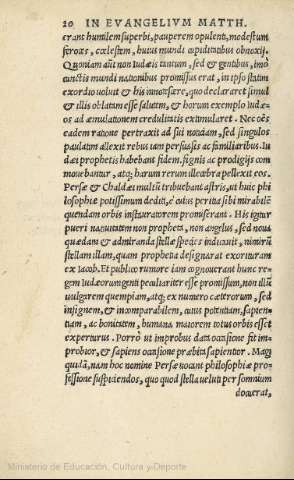 20 IN EVANGELIVM MATTH.
erant humilem superbi, pauperem opulenti, modestum
feroces, cœlestem, huius mundi cupiditatibus obnoxij.
Quoniam aũt non Iudæis tantum, sed & gentibus, imò
cunctis mundi nationibus promissus erat, in ipso statim
exordio voluit & his innotescere, quo declararet simul
& illis oblatam esse salutem, & horum exemplo Iudæ-
os ad æmulationem credulitatis extimularet. Nec oẽs
eadem ratione pertraxit ad sui notitiam, sed singulos
paulatim allexit rebus tam persuasis ac familiaribus. Iu
dæi prophetis habebant fidem, signis ac prodigijs com
mouebantur, atq; harum rerum illecebra pellexit eos.
Persæ & Chaldæi multũ tribuebant astris, ut huic phi
losophiæ potissimum dediti, è cuius peritia sibi mirabilẽ
quendam orbis instauratorem promiserant. His igitur
pueri natiuitatem non propheta, non angelus, sed noua
quædam & admiranda stellæ species indicauit, nimirũ
stellam illam, quam propheta designarat exorituram
ex Iacob. Et publico rumore iam cognouerant hunc re-
gem Iudæorum genti peculiariter esse promissum, non illũ
uulgarem quempiam, atq; ex numero cæterorum, sed
insignem, & incomparabilem, cuius potentiam, sapien-
tiam, ac bonitatem, humana maiorem totus orbis esset
experturus. Porrò ut improbus data occasione fit im-
probior, & sapiens occasione præbita sapientior. Magi
quidã, nam hoc nomine Persæ uocant philosophiæ pro-
fessione suspiciendos, quo quod stella ueluti per somnium
docuerat,
Ministerio de Educación, Cultura y Deporte